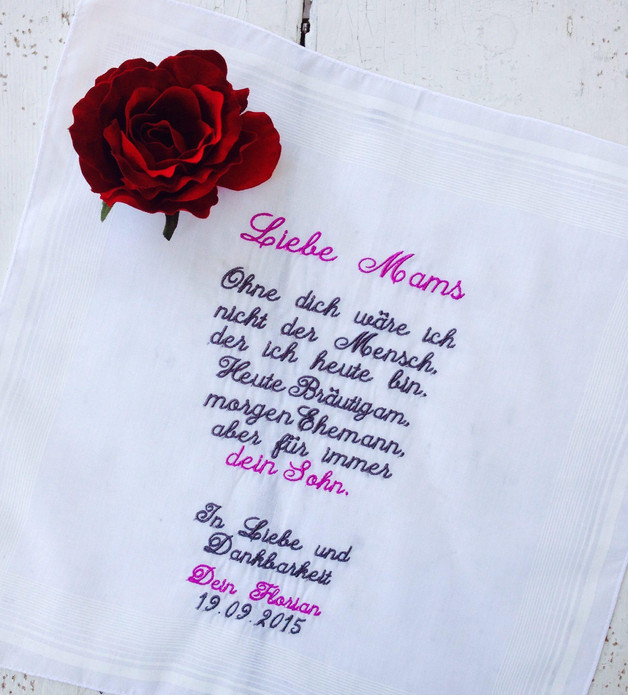 Liebe Mams
Ohne dich wäre ich
nicht der Mensch,
der ich heute bin.
Heute Bräutigam,
morgen Ehemann,
aber für immer
dein Sohn.
In Liebe und
Dankbarkeit
Dein Florian
19.09.2015